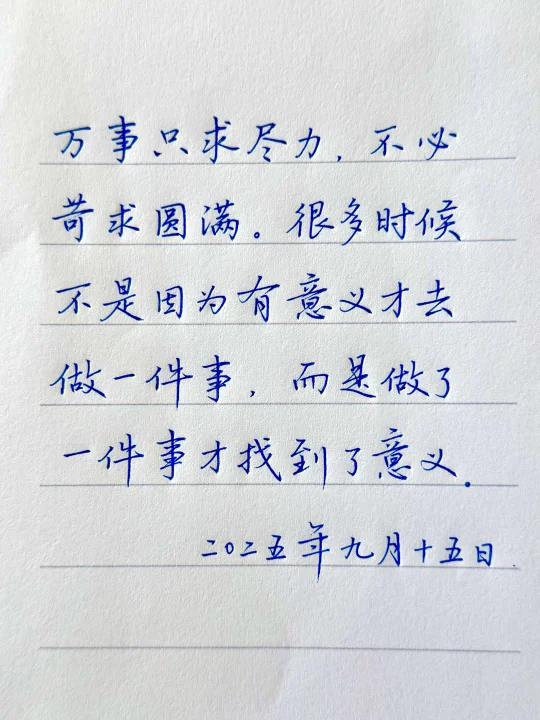 万事只求尽力，不必
苛求圆满。很多时候
不是因为有意义才去
做一件事，而是做了
一件事才找到了意义.
二〇二五年九月十五日